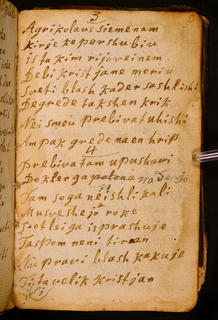 3
Agrikolaus s iemenam
kirje kepershubiu
is takim rijoveinem
Debi kristjane moriu
Sveti blash kader sashlishi
Degrede takshen krik
Nei smeu prebivat uhishi
Ampak grede na en hrib
4
Prebivatam upushavi
Dokler ga
Tam soga neishli kali
Musveshejo roke
Sootleiga is prashuje
Taspom neni
Na pravi blash kakuje
Ti ta velik kristjan